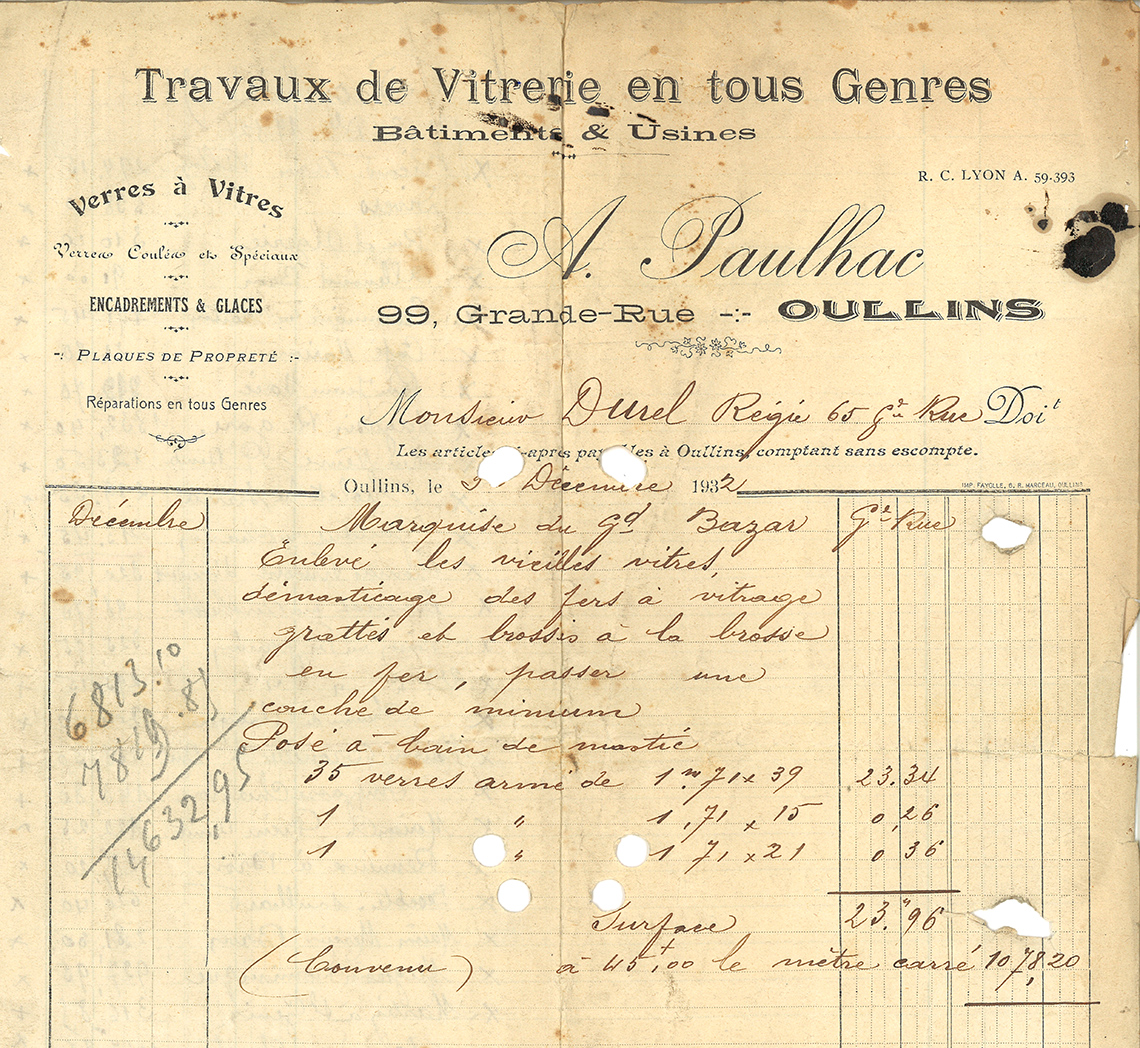 Travaux de Vitrerie en tous Genres
Bâtiments & Usines
R. C. LYON A. 59-393
Verres à Vitres
Verres Coulés et Spéciaux
ENCADREMENTS & GLACES
-: PLAQUES DE PROPRETÉ :-
Réparations en tous Genres
A. Paulhac
99, Grande-Rue -:- OULLINS
Monsieur Durel Régie 65 Gde Rue Doit
Les articles après payables à Oullins, comptant sans escompte.
Oullins, le Décembre 1932
IMP. FAYOLLE, 6, R. MARCEAU, OULLINS
Décembre Marquise du Gd Bazar Gde Rue
Enlevé les vieilles vitres,
démasticage des fers à vitrage
grattés et brossés à la brosse
en fer, passer une
couche de minium
Posé à bain de mastic
35 verres armé de 1m,71 x 39 23.34
1 " 1,71 x 15 0,26
1 " 1 71 x 21 0 36
Surface 23.96
(Convenu) à 45f,00 le mètre carré 1078,20
6813.10
7819.85
14632,95